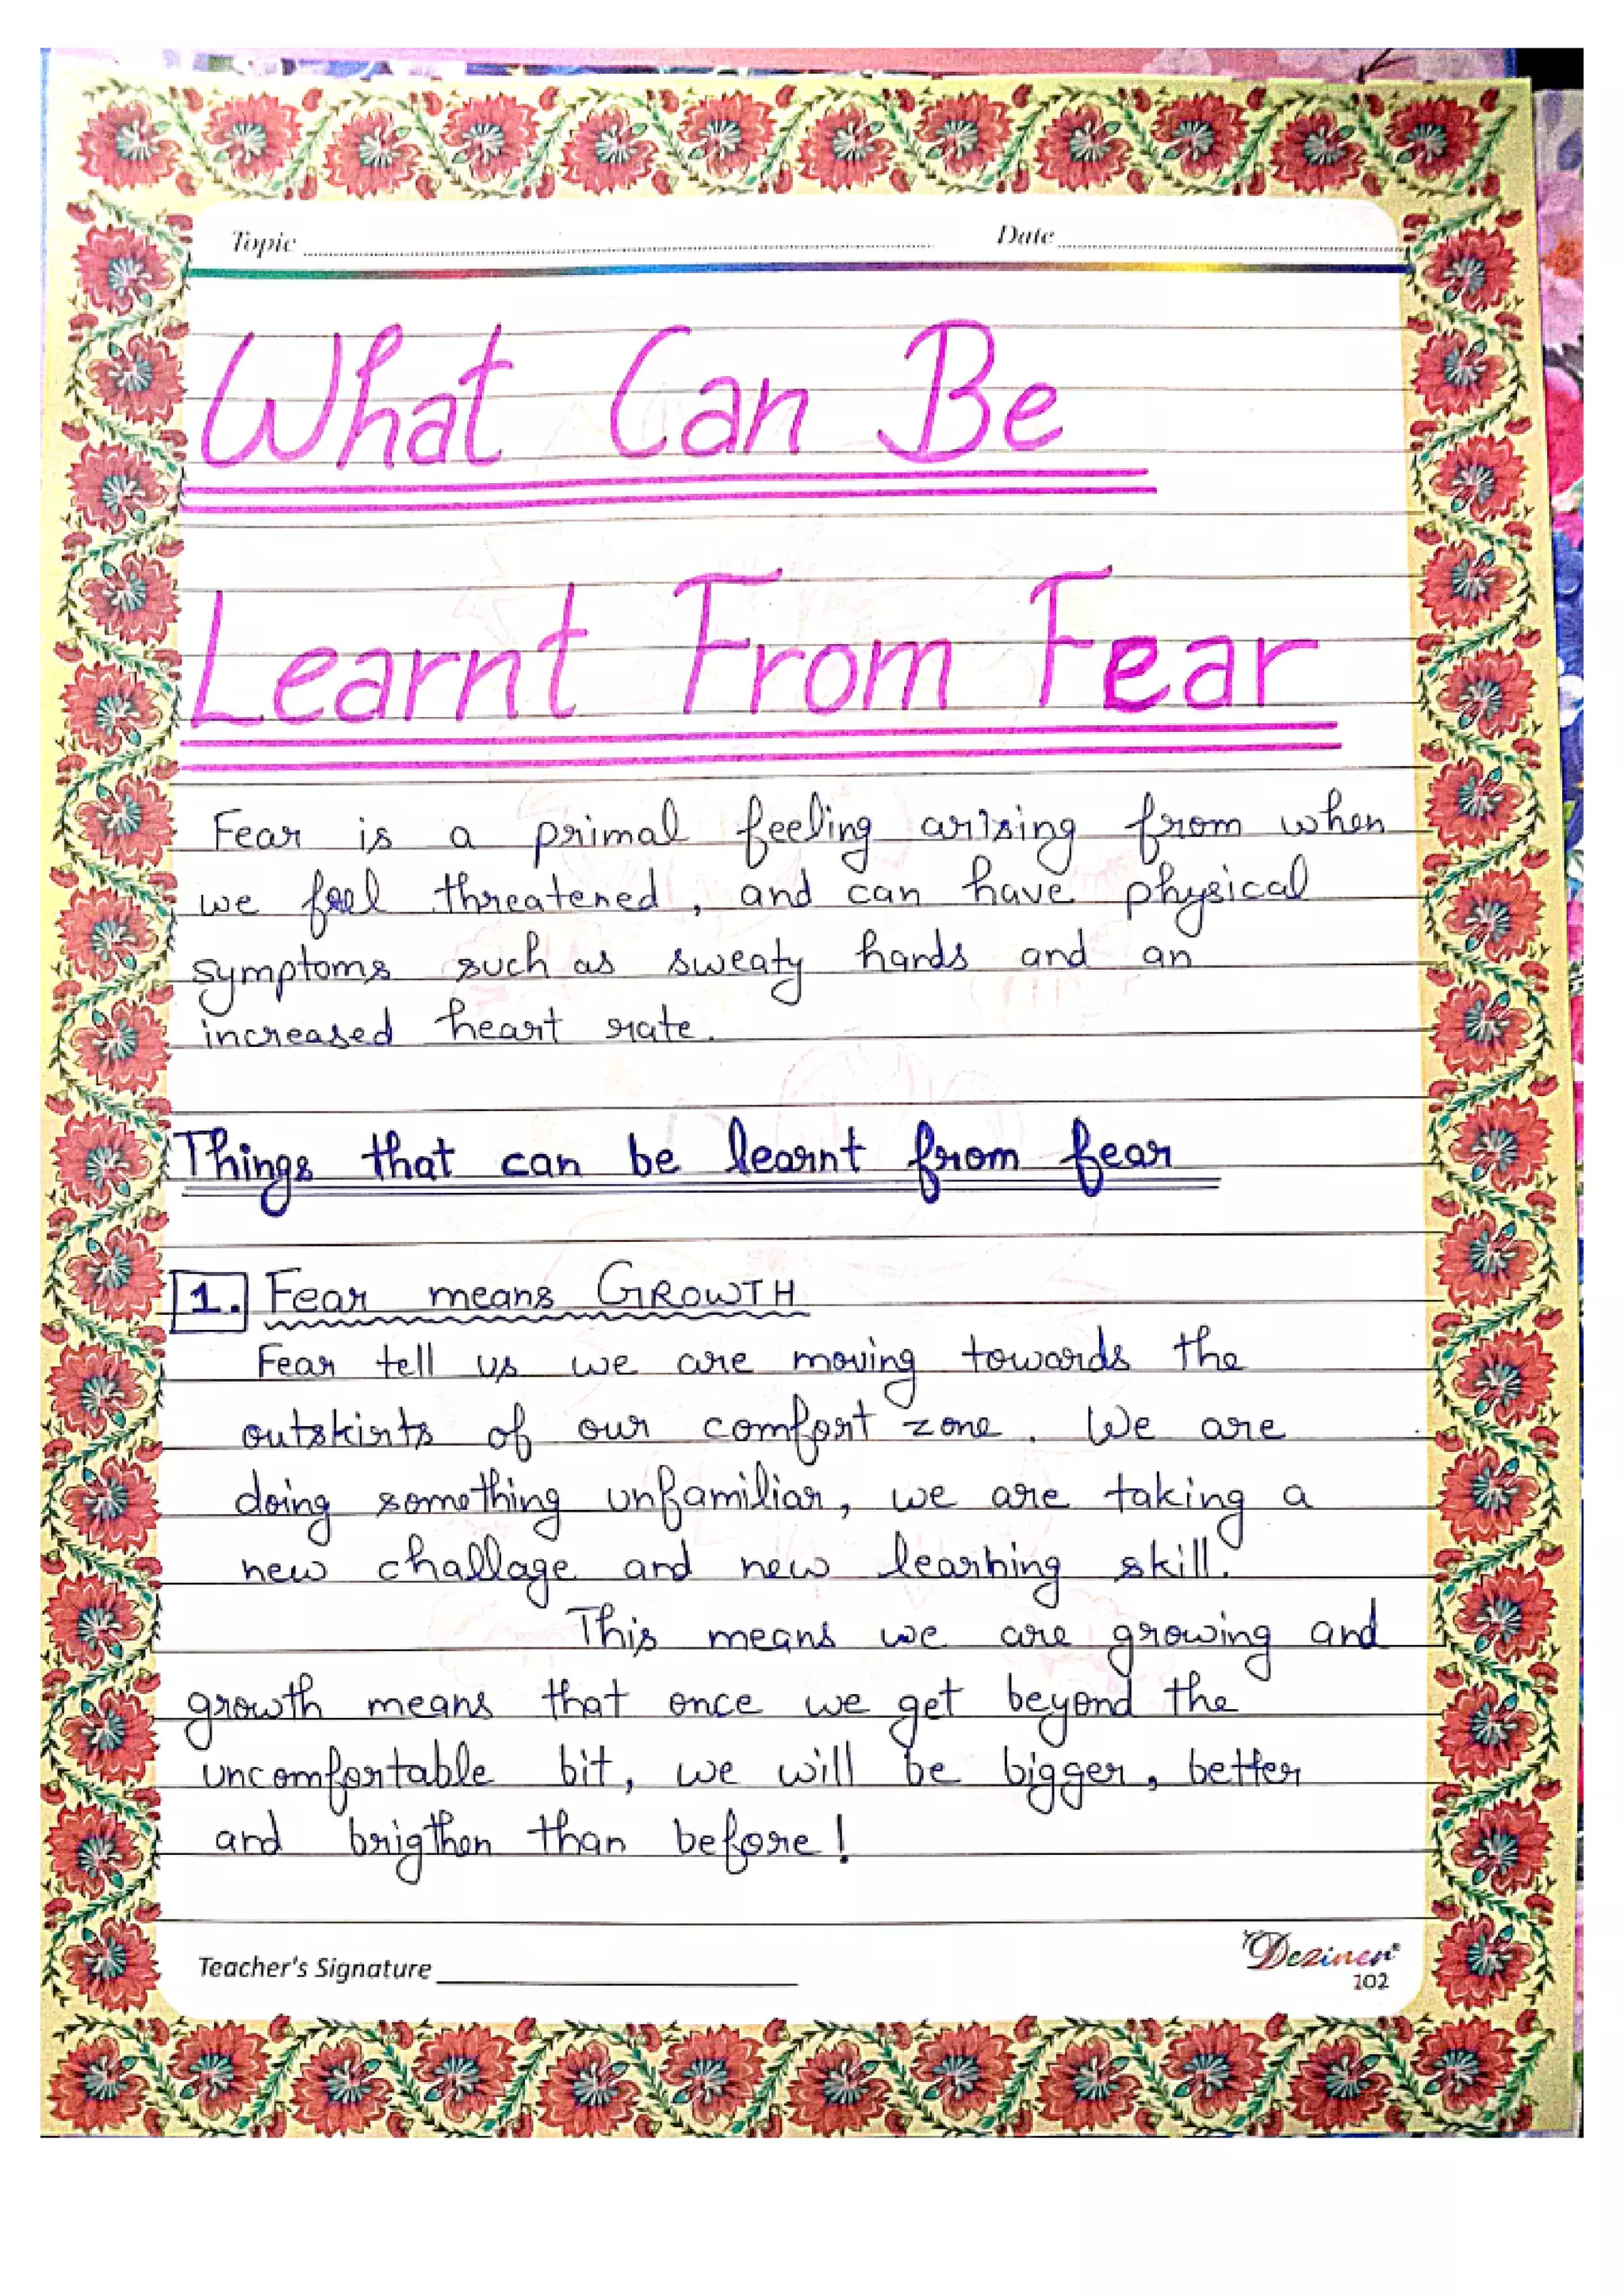 Topic Date
What Can Be
Learnt From Fear
Fear is a primal feeling arising from when
we feel threatened, and can have physical
symptoms such as sweaty hands and an
increased heart rate.
Things that can be learnt from fear
1. Fear means GROWTH
Fear tell us we are moving towards the
outskirts of our comfort zone. We are
doing something unfamiliar, we are taking a
new challage and new learning skill.
This means we are growing and
growth means that once we get beyond the
uncomfortable bit, we will be bigger, better
and brigther than before!
Teacher's Signature
Deziner®
102